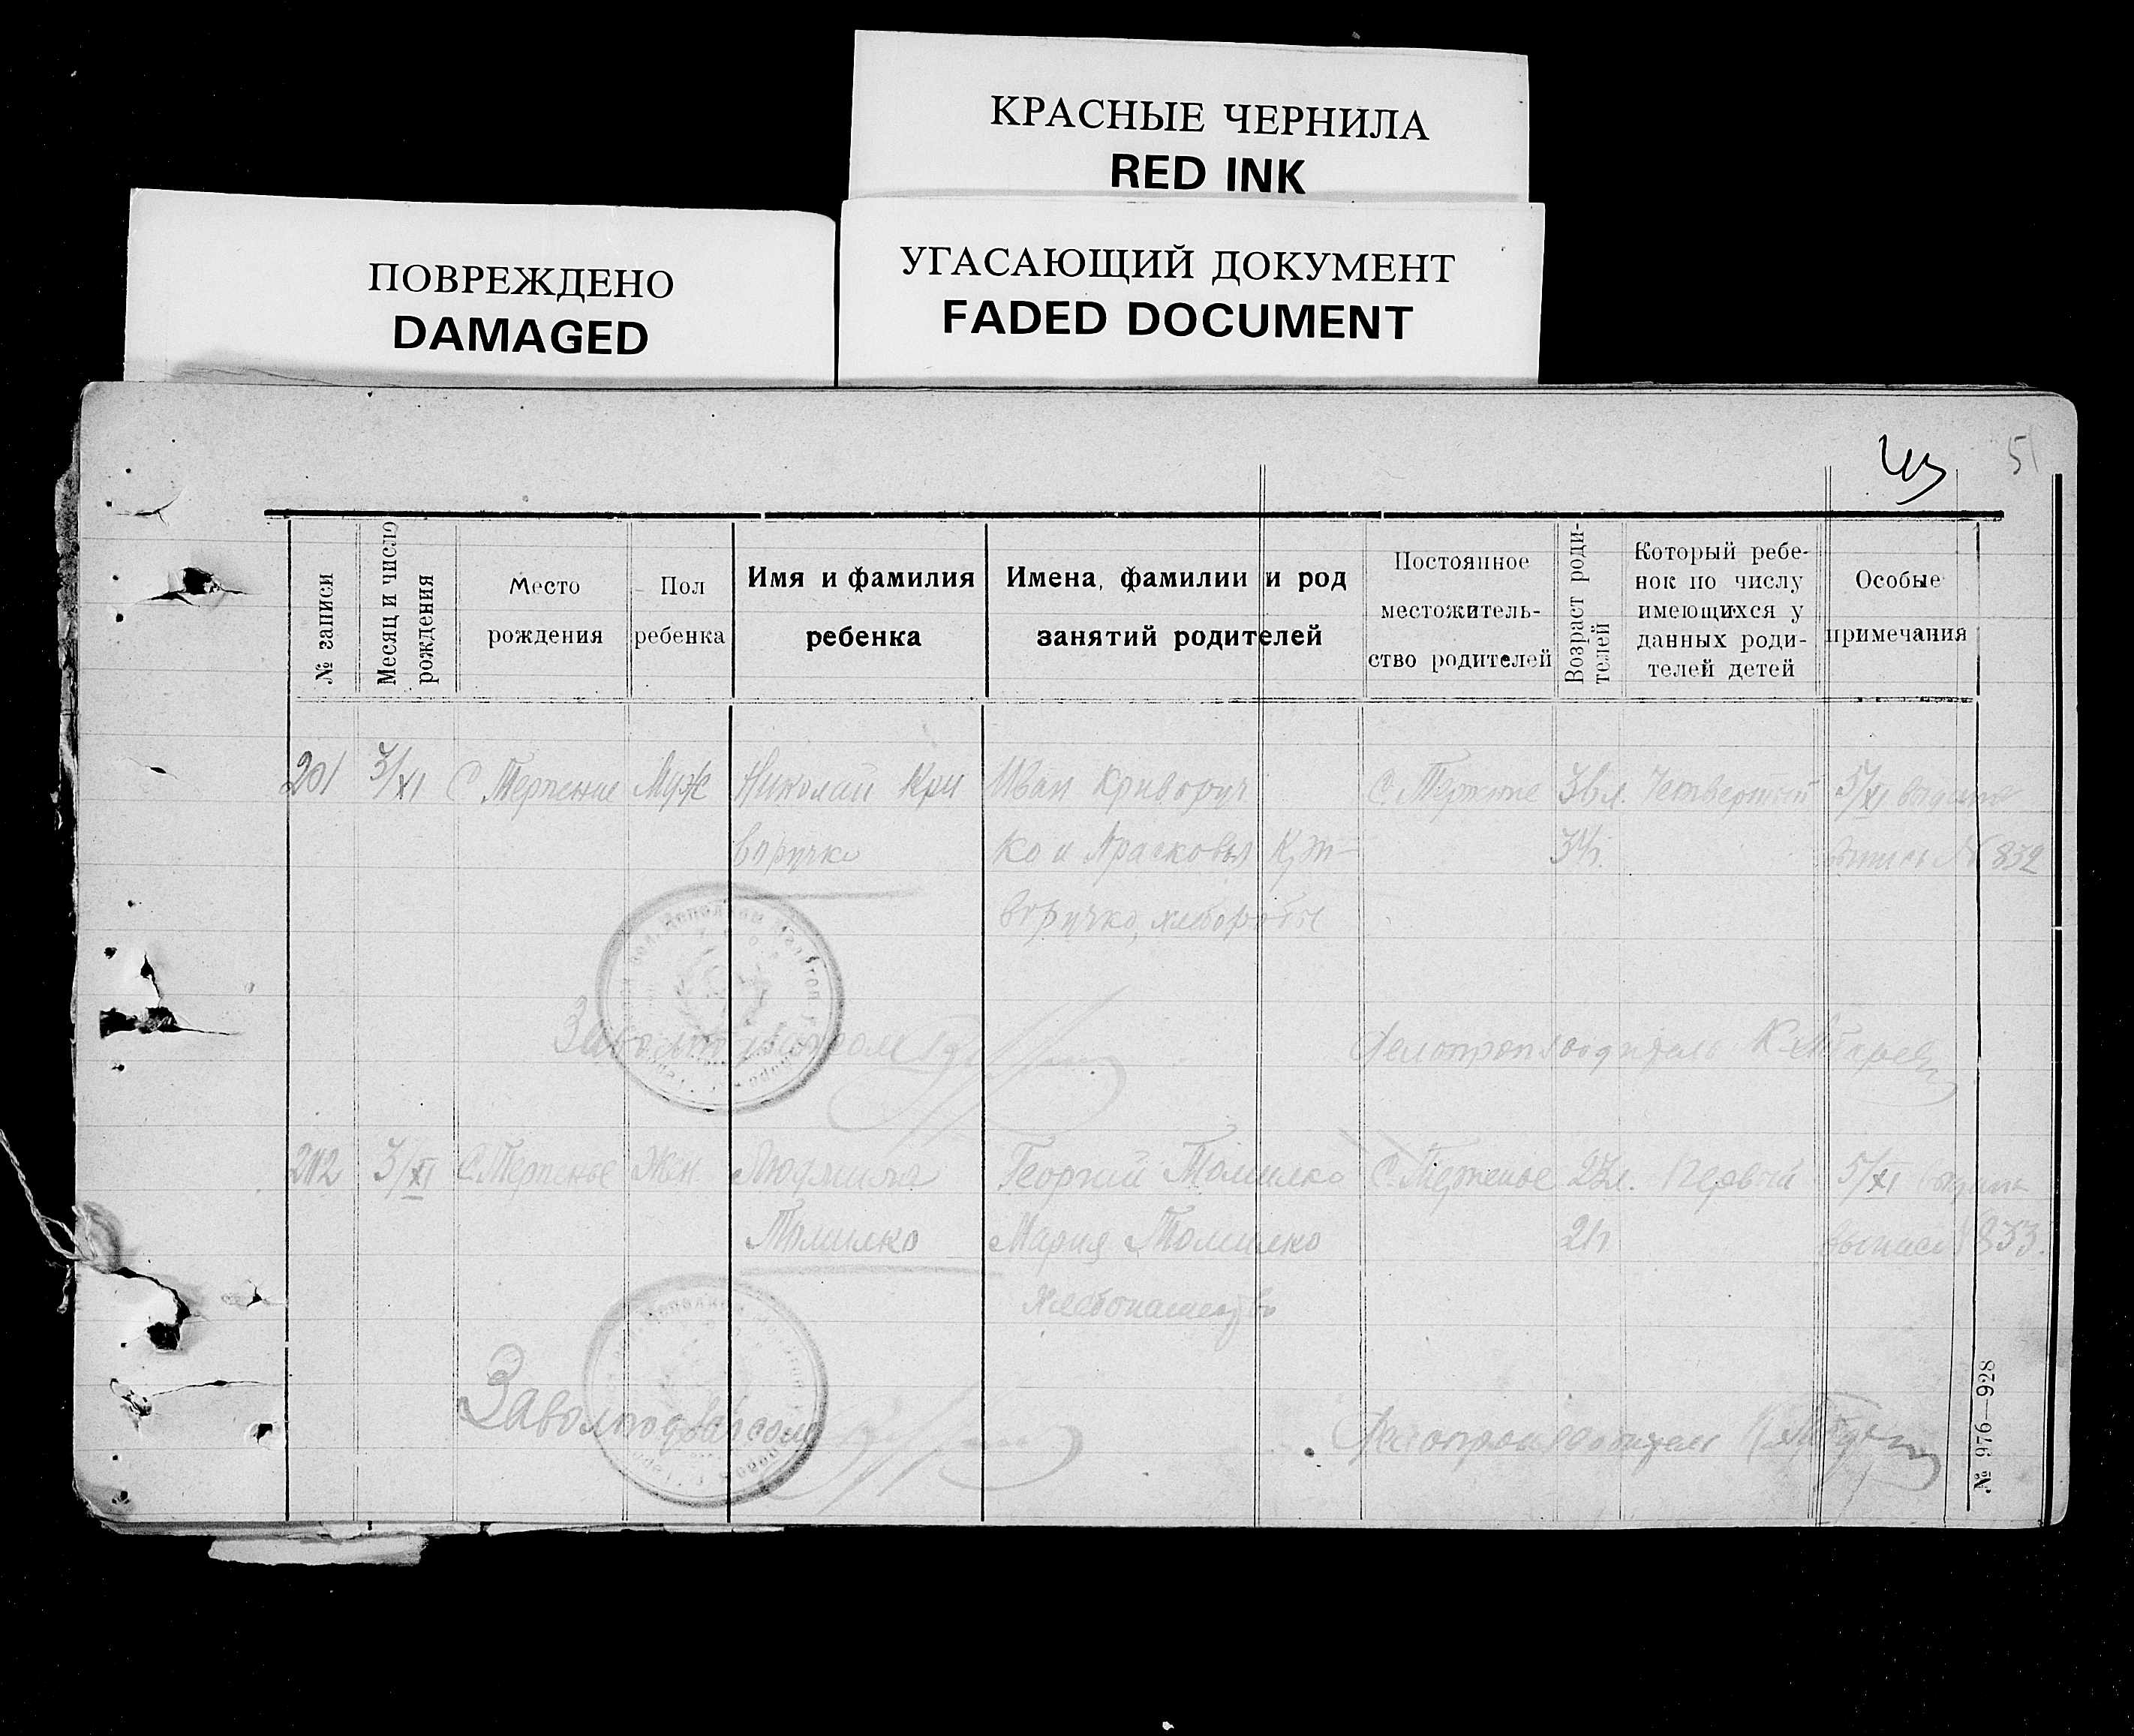 КРАСНЫЕ ЧЕРНИЛА
RED INK
ПОВРЕЖДЕНО
DAMAGED
УГАСАЮЩИЙ ДОКУМЕНТ
FADED DOCUMENT
51
№ записи
Месяц и число
рождения
Место
рождения
Пол
ребенка
Имя и фамилия
ребенка
Имена, фамилии и род
занятий родителей
Постоянное
местожитель-
ство родителей
Возраст роди-
телей
Который ребе-
нок по числу
имеющихся у
данных роди-
телей детей
Особые
примечания
201 3/XI С. Терпение Муж Николай Кри Иван Криворуч С. Терпение 36 л. Четвертый 5/XI выдана
воручко ко и Прасковья Кри- 34 выпись № 832
воручко, хлеборобы
Делопроизводитель
202 3/XI С. Терпение Жен Людмила Георгий Томилко С. Терпение 23 л. Первый 5/XI выдана
Томилко Мария Томилко 21 выпись 833.
хлебопашество
Делопроизводитель
№ 976—928